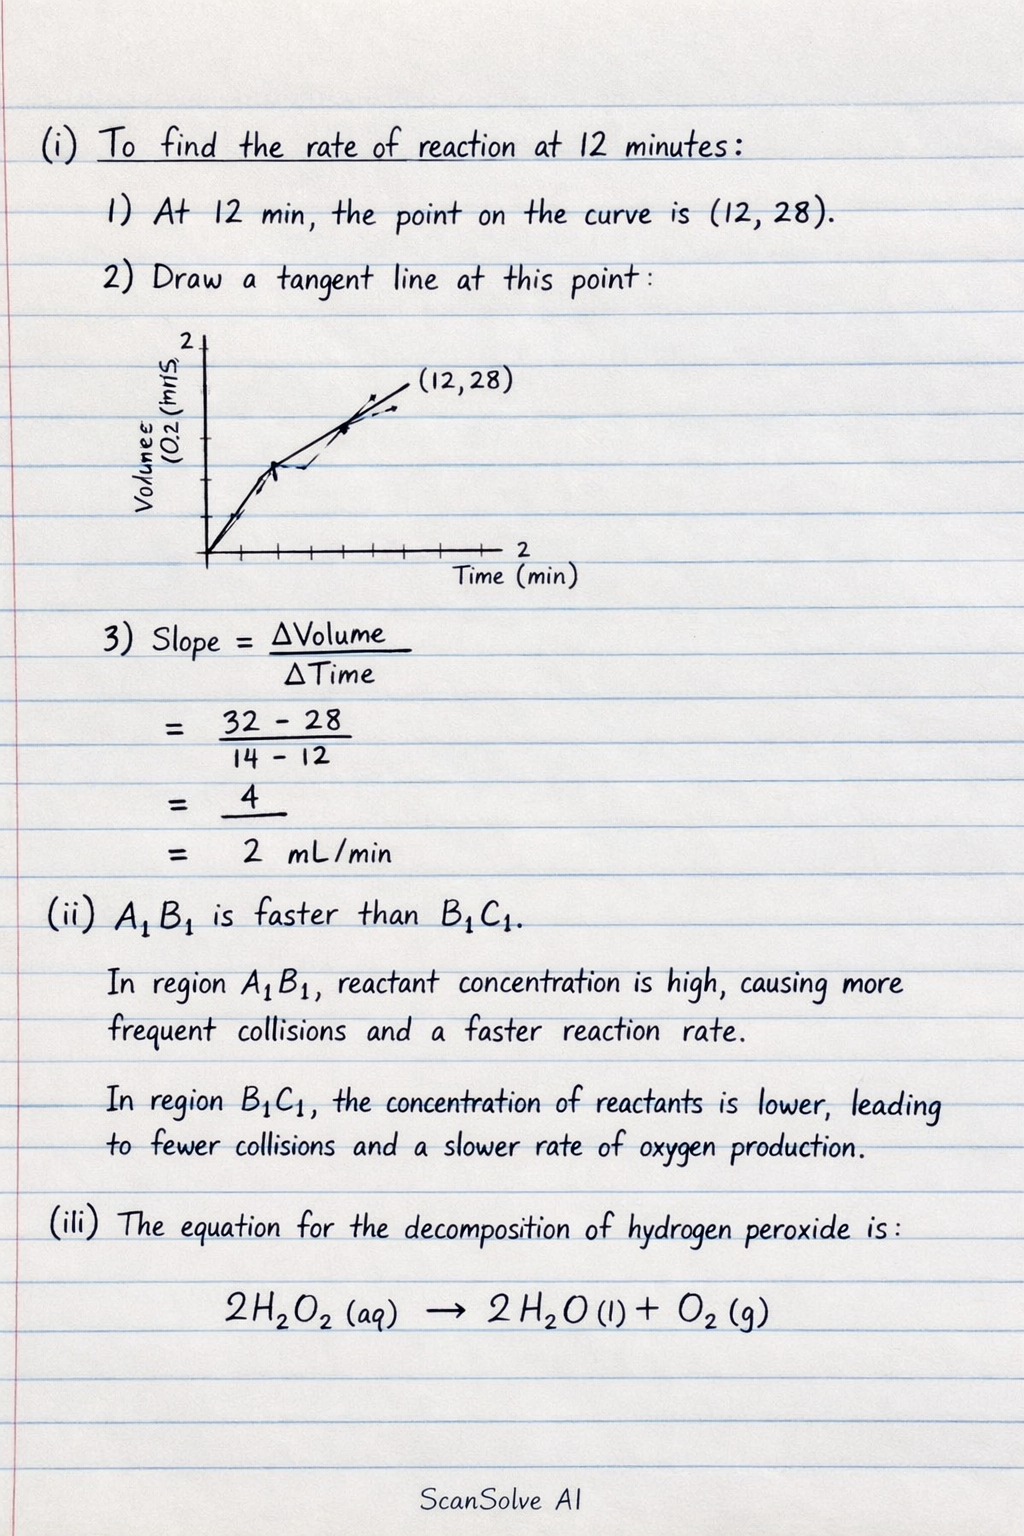 (i) To find the rate of reaction at 12 minutes:
1) At 12 min, the point on the curve is (12, 28).
2) Draw a tangent line at this point:
2
(12,28)
2
Time (min)
3) Slope = ΔVolume
ΔTime
= 32 - 28
14 - 12
= 4
= 2 mL/min
(ii) A₁B₁ is faster than B₁C₁.
In region A₁B₁, reactant concentration is high, causing more
frequent collisions and a faster reaction rate.
In region B₁C₁, the concentration of reactants is lower, leading
to fewer collisions and a slower rate of oxygen production.
(ili) The equation for the decomposition of hydrogen peroxide is:
2H₂O₂ (aq) → 2H₂O (l) + O₂ (g)
ScanSolve AI